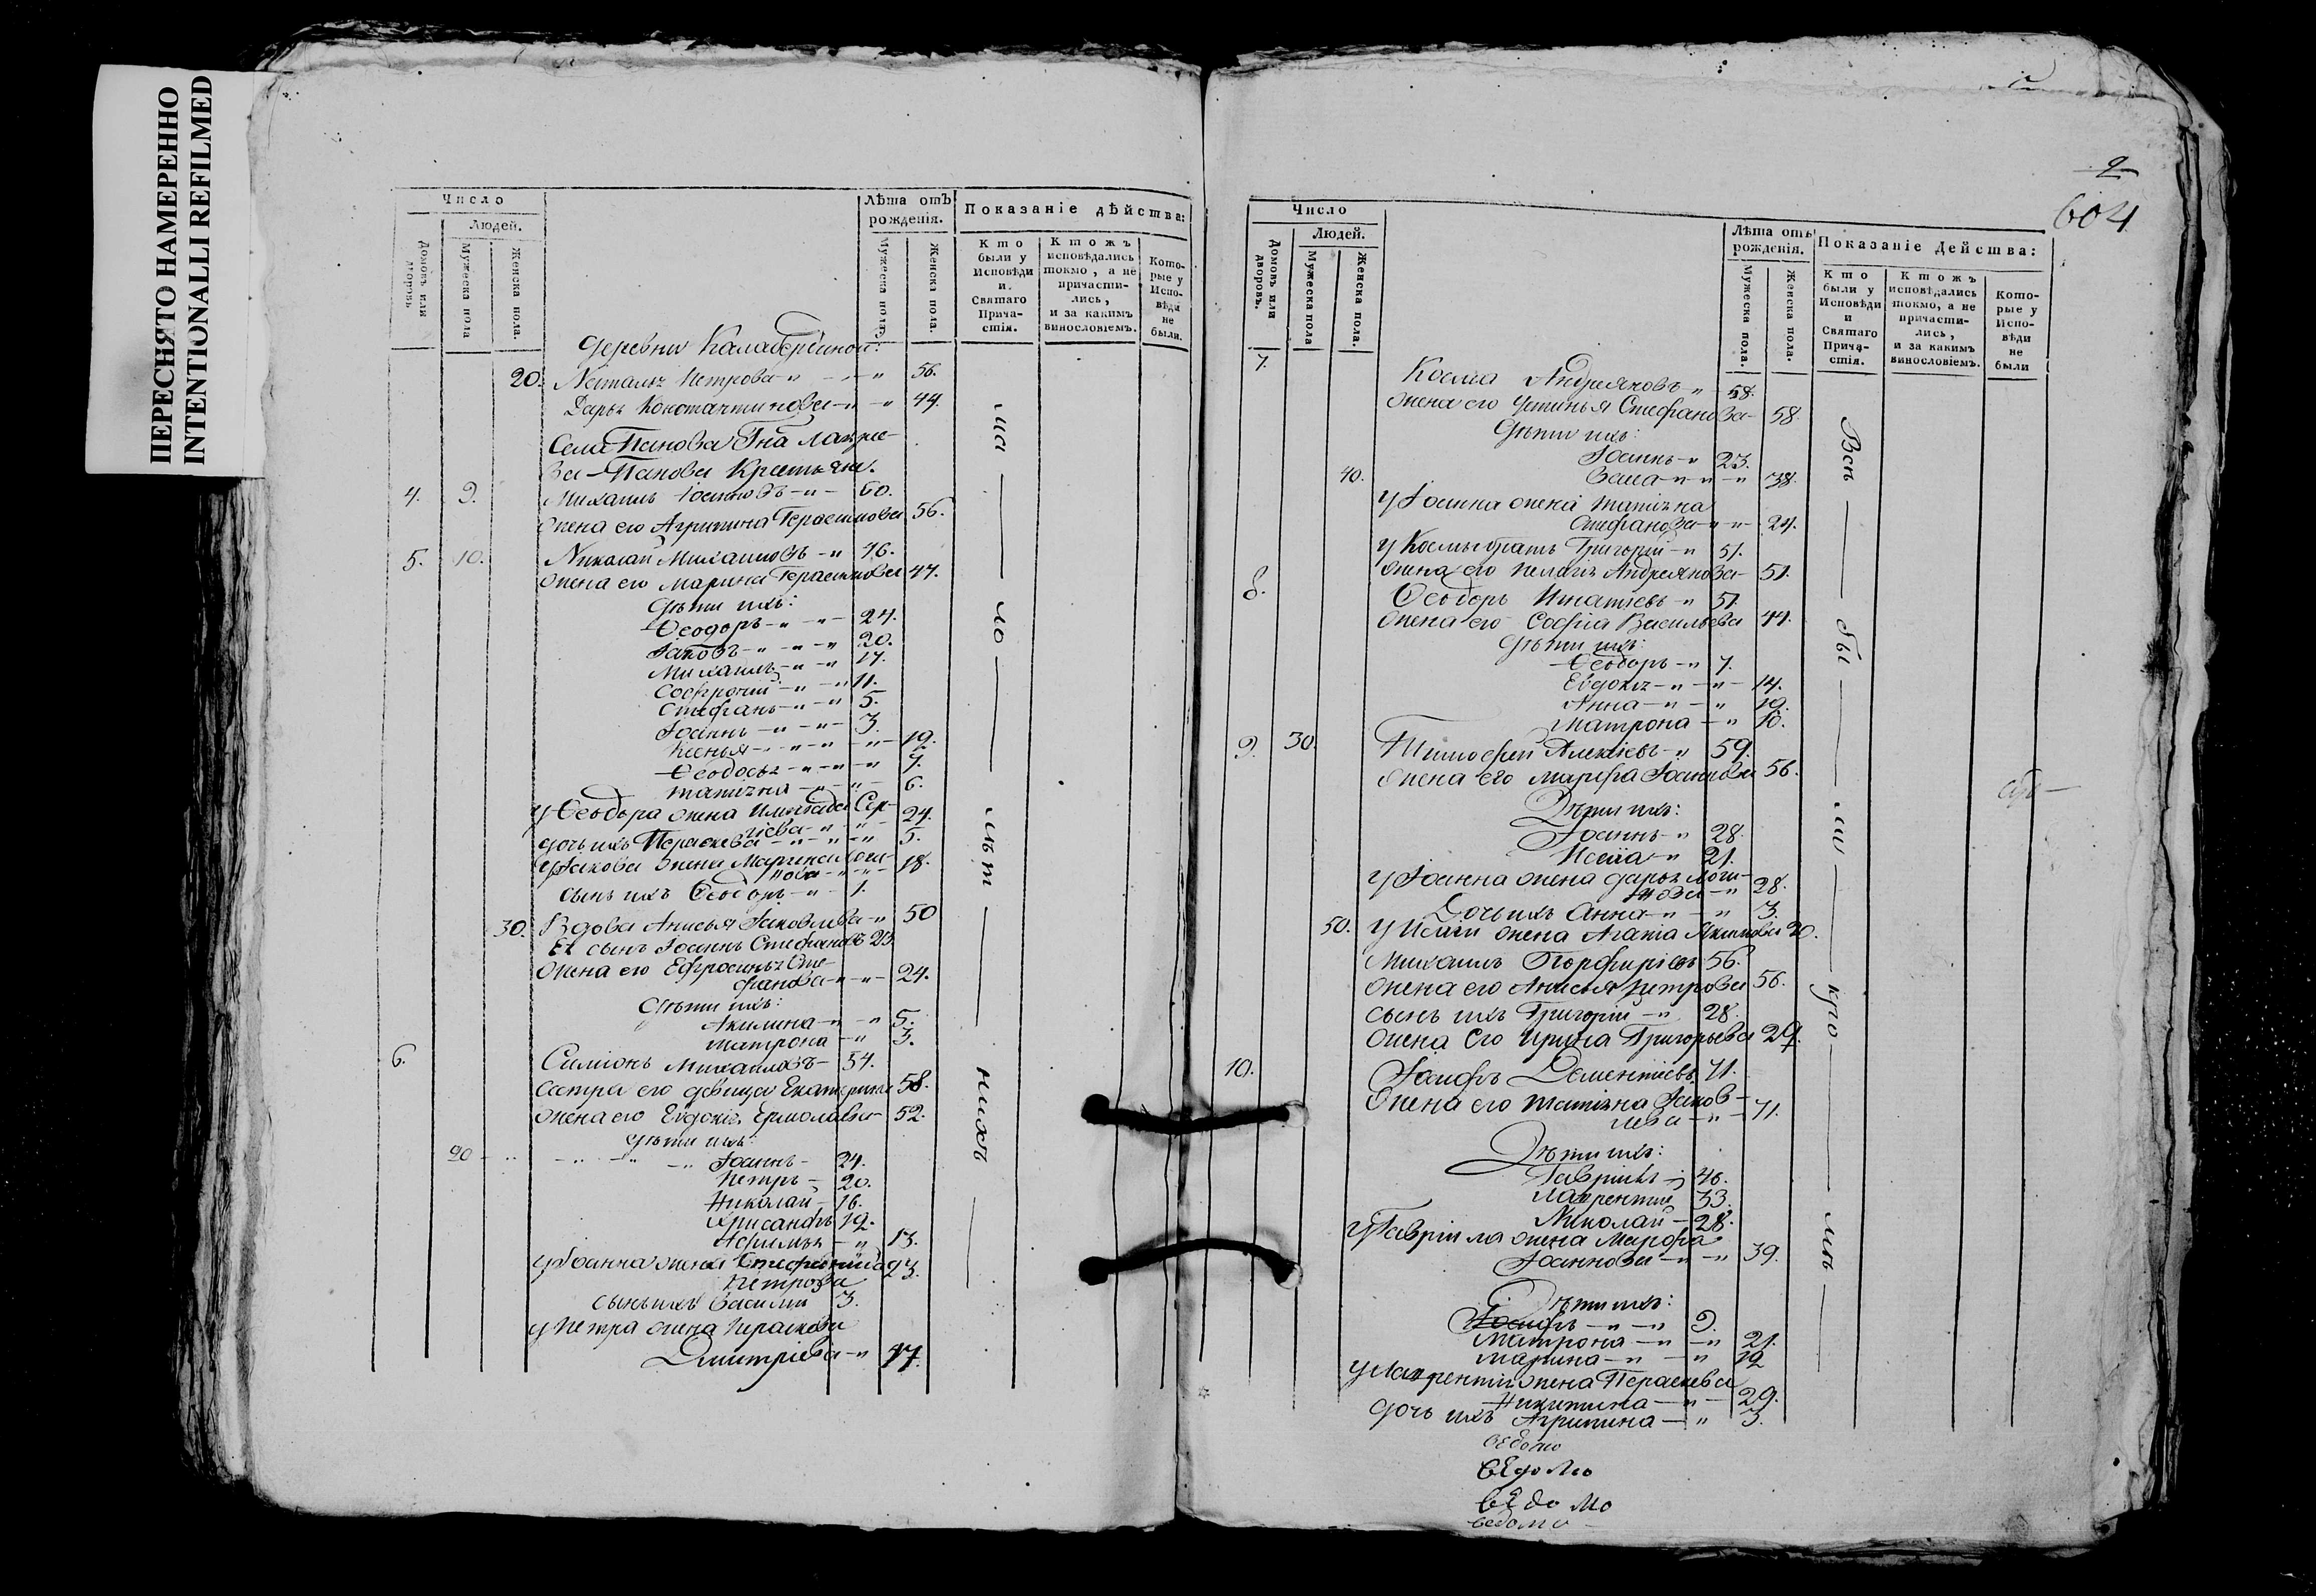 ПЕРЕСНЯТО НАМЕРЕННО
INTENTIONALLI REFILMED
Число
Людей.
Домовъ или дворовъ
Мужеска пола
Женска пола.
Лѣта отъ рожденія.
Мужеска пола.
Женска пола.
Показаніе дѣйства:
Кто были у Исповѣди и Святаго Прича-стія.
Ктожъ исповѣдались токмо, а не причасти-лись, и за какимъ винословіемъ.
Кото-рые у Испо-вѣди не были.
20. Петрова 56.
Дарья Константинова 44.
Села Панова Гна
Панова Крестьяне.
4. 9. Михаилъ 60.
жена его Агрипина Герасимова 56.
5. 10. Николай Михаиловъ 46.
жена его Марина Герасимова 47.
дѣти ихъ:
Ѳеодоръ 24.
Іаковъ 20.
Михаилъ 17.
Софроній 11.
Стефанъ 5.
Іоаннъ 3.
Ксенья 19.
Ѳеодосья 7.
Татіяна 6.
у Ѳеодора жена Сер-
гіева 24.
дочь ихъ Параскева 5.
у Іакова жена Марина Логи-
нова 18.
сынъ ихъ Ѳеодоръ 1.
30. Вдова Анисья Іаковлева 50
Ея сынъ Іоаннъ Стефановъ 23.
жена его Ефросинья Сте-
фанова 24.
дѣти ихъ:
Акилина 5.
Матрона 3.
6. Симіонъ Михаиловъ 54.
Сестра его дѣвица Екатерина 58.
жена его Евдокія Ермолаева 52.
дѣти ихъ:
20 Іоаннъ 24.
Петръ 20.
Николай 16.
Хрисанфъ 12.
13.
у Іоанна жена Стефанида 23.
Петрова
сынъ ихъ Василій 3.
у Петра жена Параскева
Дмитріева 17.
ма ло лѣт нихъ
604
Число
Людей.
Домовъ или дворовъ.
Мужеска пола
Женска пола.
Лѣта отъ рожденія.
Мужеска пола.
Женска пола.
Показаніе Действа:
Кто были у Исповѣди и Святаго Прича-стія.
Ктожъ исповѣдались токмо, а не причасти-лись, и за какимъ винословіемъ.
Кото-рые у Испо-вѣди не были
7. Косма Андреяновъ 58.
жена его Устинья Стефанова 58.
Дѣти ихъ:
Іоаннъ 23.
40. 38.
у Іоанна жена Татіяна
Стефанова 24.
у Космы братъ Григорій 51.
жена его Пелагія Андреянова 51.
8. Ѳеодоръ Игнатіевъ 51.
жена его Софія Васильева 44.
Дѣти ихъ:
Ѳеодоръ 7.
Евдокія 14.
Анна
Матрона 10.
9. 30. Тимофей Алексіевъ 59.
жена его Марфа Іоаннова 56.
Дѣти ихъ:
Іоаннъ 28.
Исаіа 21.
у Іоанна жена Дарья Логи-
нова 28.
Дочь ихъ Анна 3.
50. у Исаіи жена Агафіа 20.
Михаилъ Порфиріевъ 56.
жена его Анисья Петрова 56.
сынъ ихъ Григорій 28.
жена его Ирина Григорьева 29.
10. Іосифъ Дементіевъ 71.
жена его Татіяна Іаков-
лева 71.
Дѣти ихъ:
Гавріилъ 46.
Лаврентій 33.
Николай 28.
у Гавріила жена Марфа
Іоаннова 39.
Дѣти ихъ:
Іосифъ 9.
Матрона 21.
Марина 12
у Лаврентія жена Параскева
Никитина 29.
дочь ихъ Агрипина 3.
ведомо
вЕдомо
вЕдомо
ведомо
Всѣ бы ли кро мѣ